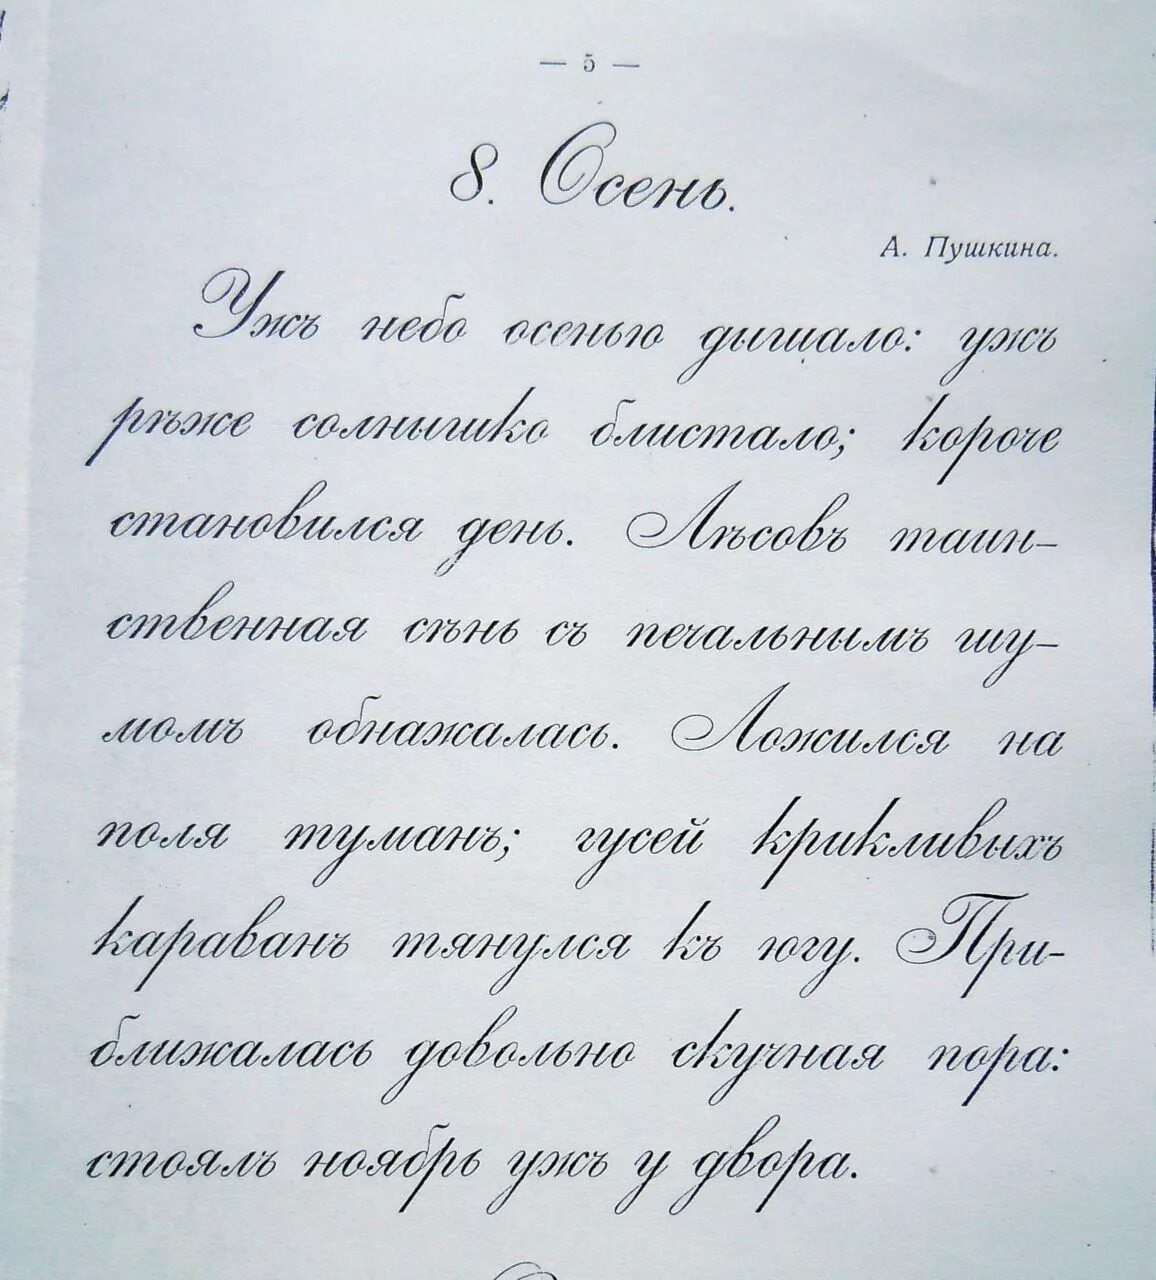 — 5 —
8. Осень.
А. Пушкина.
Ужъ небо осенью дышало: ужъ
рѣже солнышко блистало; короче
становился день. Лѣсовъ таин-
ственная сѣнь съ печальнымъ шу-
момъ обнажалась. Ложился на
поля туманъ; гусей крикливыхъ
караванъ тянулся къ югу. При-
ближалась довольно скучная пора:
стоялъ ноябрь ужъ у двора.